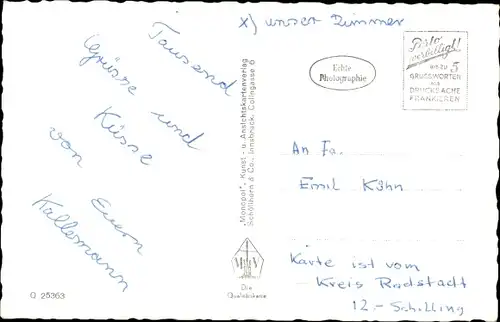 x) unser Zimmer
Tausend
Grüsse und
Küsse
von Euern
Kallemann
"Monopol", Kunst - u. Ansichtskartenverlag
Schöllhorn & Co., Innsbruck, Colingasse 6
Die
Qualitätskarte
Echte
Photographie
Porto
verbilligt!
BIS ZU 5
GRUSSWORTEN
ALS
DRUCKSACHE
FRANKIEREN
An Fa.
Emil Köhn
Karte ist vom
Kreis Radstadt
12.- Schilling
Q 25363